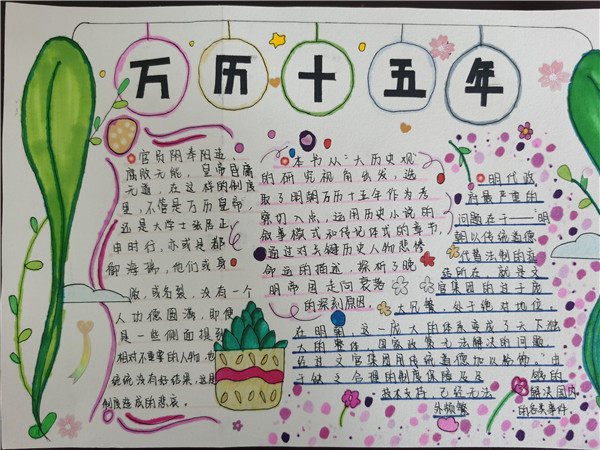 万历十五年
官员阴奉阳违,
腐败无能,皇帝昏庸
无道,在这样的制度
里,不管是万历皇帝,
还是大学士张居正
申时行,亦或是都
御海瑞,他们或身
败,或名裂,没有一个
人功德圆满,即使
是一些侧面提到
相对不重要的人物,也
统统没有好结果,这是
制度造成的悲哀。
本书从"大历史观"
的研究视角出发,选
取了明朝万历十五年作为考
察切入点,运用历史小说的
叙事模式和传记体式的章节,
通过对关键历史人物悲惨
命运的描述,探析了晚
明帝国走向衰落
的深刻原因。
明代政
府最严重的
问题在于——"明
朝以传统道德
代替法制的症
结所在,就是文
官集团的过于庞
大冗繁,处于绝对地位。
在明朝,这一庞大的体系变成了天下独
大的事件,国家政策无法解决的问题
经过文官集团用传统道德加以粉饰,由
于缺乏合理的制度保障及足够的
技术支持,已经无法解决国内
频繁的各类事件